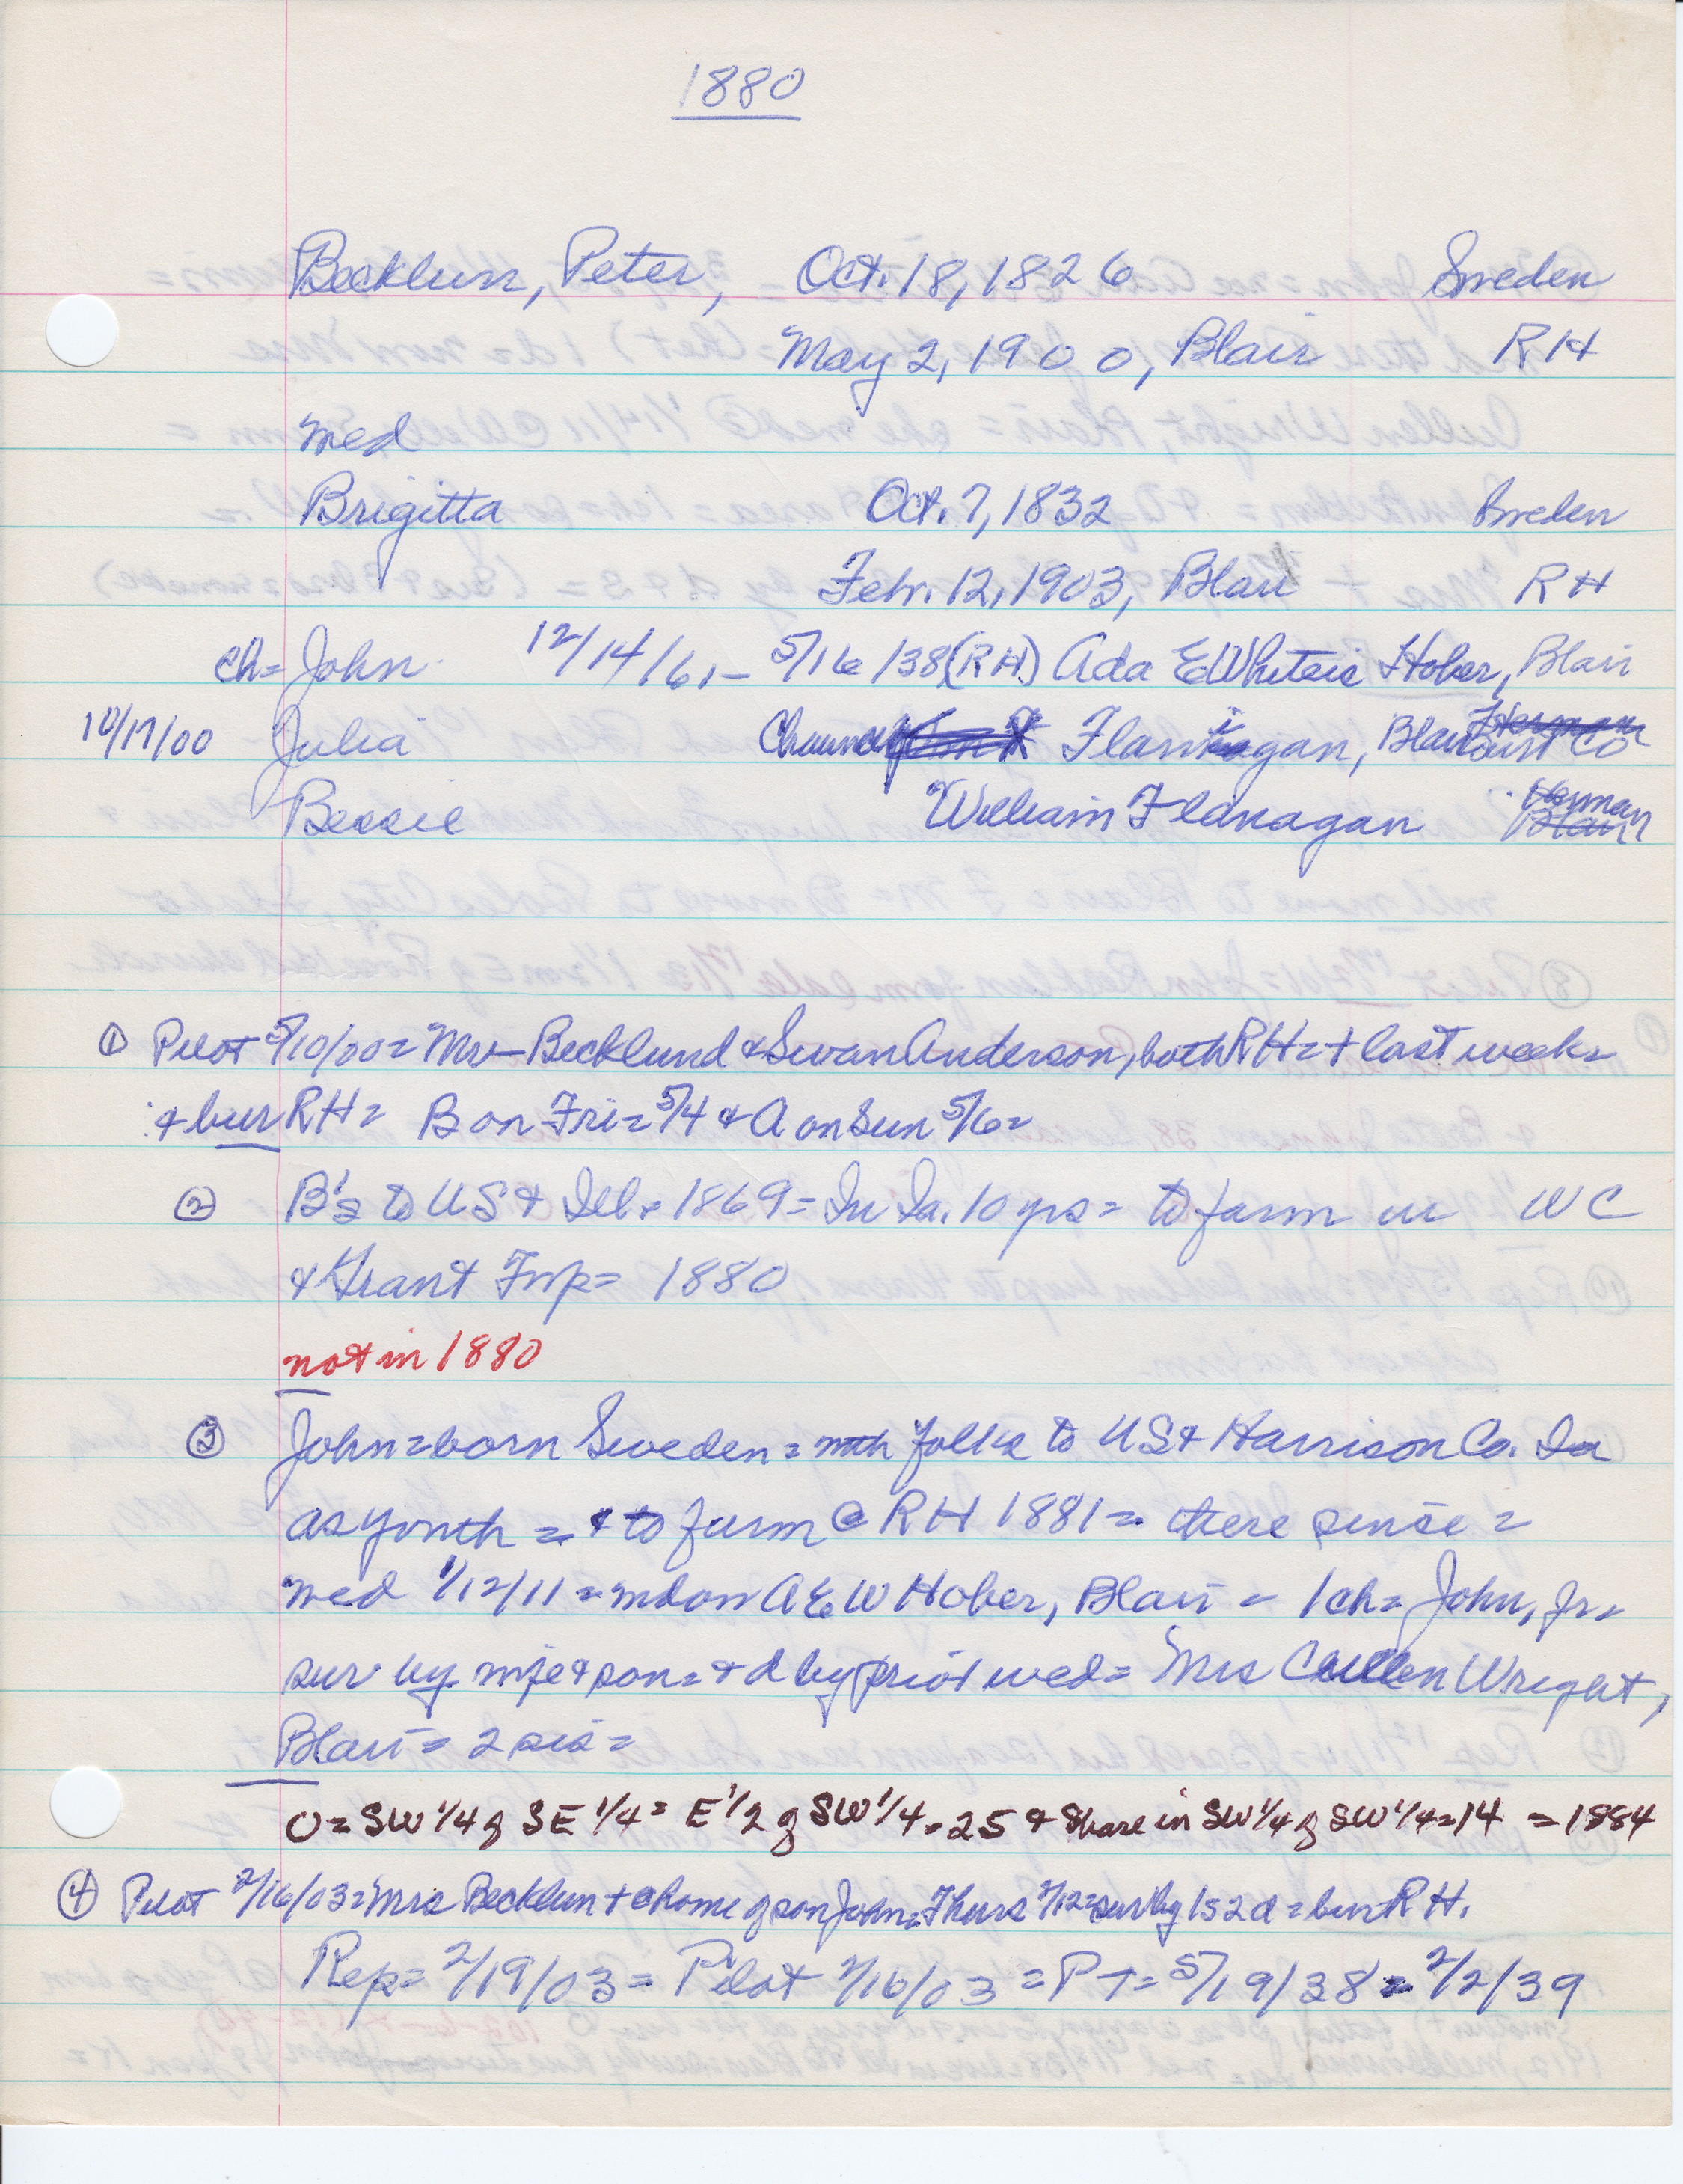 1880
Becklun, Peter, Oct. 18, 1826 Sweden
May 2, 1900, Blair RH
med
Brigitta Oct. 7, 1832 Sweden
Febr. 12, 1903, Blair RH
ch= John 12/14/61 - 5/16/38 (RH) Ada E White Hober, Blair
10/17/00 Julia Chauncey Flanagan, Blair Co
Bessie William Flanagan Herman
① Pilot 5/10/00 = Mr Becklund & Swan Anderson, both RH = + last week =
& bur RH = B on Fri = 5/4 & A on Sun 5/6 =
② B's to US & Ill. 1869 = In Ia. 10 yrs = to farm in WC
& Grant Twp = 1880
not in 1880
③ John = born Sweden = with folks to US & Harrison Co. Ia
as youth = & to farm @ RH 1881 = there since =
med 1/12/11 = A E W Hober, Blair = 1 ch = John, Jr =
sur by wife & son = & d by prior wed = Mrs Cullen Wright,
Blair = 2 sis =
O = SW 1/4 of SE 1/4 = E 1/2 of SW 1/4 = 25 & share in SW 1/4 of SW 1/4 = 14 = 1884
④ Pilot 2/16/03 = Mrs Becklun + @ home of son John = Thurs 2/12 = sur by 1s 2d = bur RH.
Rep = 2/19/03 = Pilot 2/16/03 = PT = 5/19/38 = 2/2/39